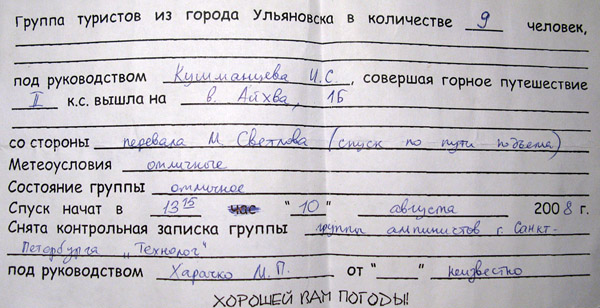 Группа туристов из города Ульяновска в количестве 9 человек,
под руководством Кушманцева И.С., совершая горное путешествие
II к.с. вышла на в. Айхва, 1Б
со стороны перевала М. Светлова (спуск по пути подъема)
Метеоусловия отличные
Состояние группы отличное
Спуск начат в 13 15 час "10" августа 2008 г.
Снята контрольная записка группы группы альпинистов г. Санкт-
Петербурга "Технолог"
под руководством Харачко М.П. от "__" неизвестно
ХОРОШЕЙ ВАМ ПОГОДЫ!